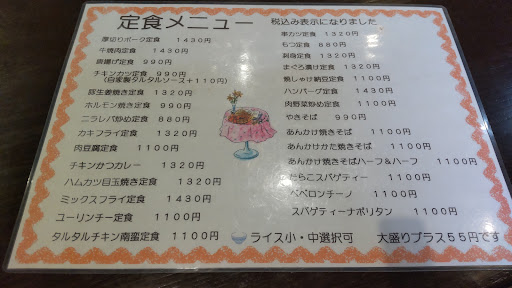 定食メニュー
税込み表示になりました
厚切りポーク定食 1430円
牛焼肉定食 1430円
唐揚げ定食 990円
チキンカツ定食 990円
(自家製タルタルソース+110円)
豚生姜焼き定食 1320円
ホルモン焼き定食 990円
ニラレバ炒め定食 880円
カキフライ定食 1320円
肉豆腐定食 1100円
チキンかつカレー 1320円
ハムカツ目玉焼き定食 1320円
ミックスフライ定食 1430円
ユーリンチー定食 1100円
タルタルチキン南蛮定食 1100円
串カツ定食 1320円
もつ定食 880円
刺身定食 1320円
まぐろ漬け定食 1320円
焼しゃけ納豆定食 1100円
ハンバーグ定食 1430円
肉野菜炒め定食 1100円
やきそば 990円
あんかけ焼きそば 1100円
あんかけかた焼きそば 1100円
あんかけ焼きそばハーフ&ハーフ 1100円
たらこスパゲティー 1100円
ペペロンチーノ 1100円
スパゲティーナポリタン 1100円
ライス小・中選択可 大盛りプラス55円です